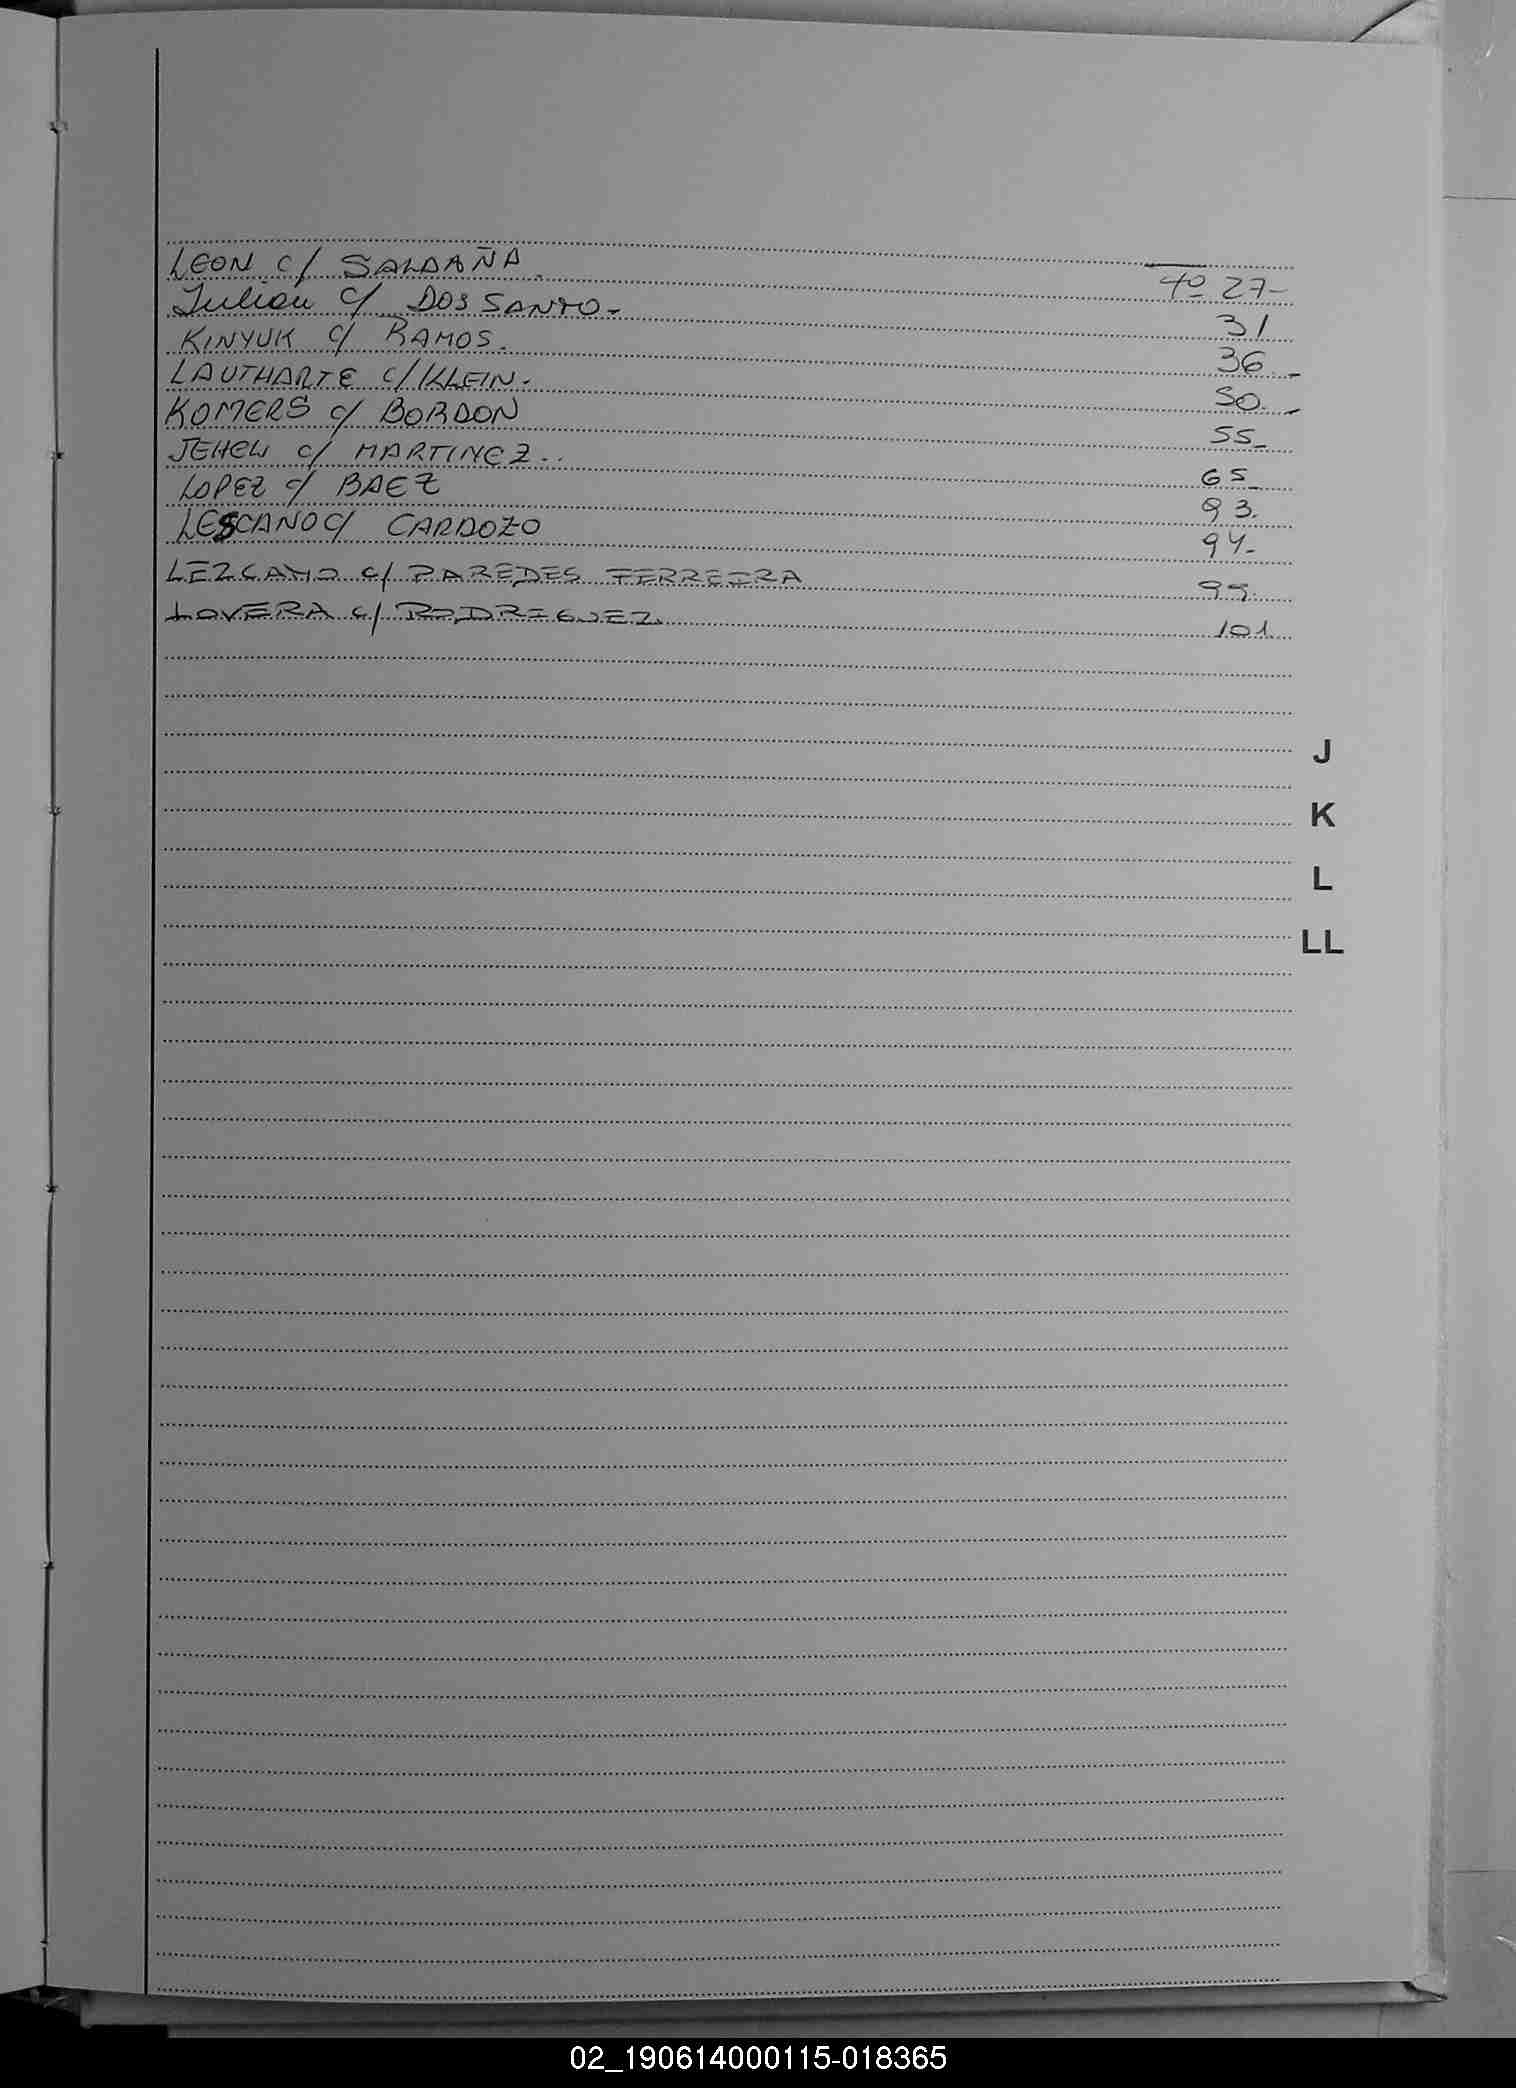 LEON c/ SALDAÑA. Fº 27-
Julian c/ DOS SANTO- 31
KINYUK c/ RAMOS. 36.-
LAUTHARTE c/ KLEIN. 50.-
KOMERS c/ BORDON 55-
c/ MARTINEZ.. 65-
LOPEZ c/ BAEZ 93.
LESCANO c/ CARDOZO 94-
LEZCANO c/ PAREDES FERREIRA
LOVERA c/ RODRIGUEZ. 101.
J
K
L
LL
02_190614000115-018365